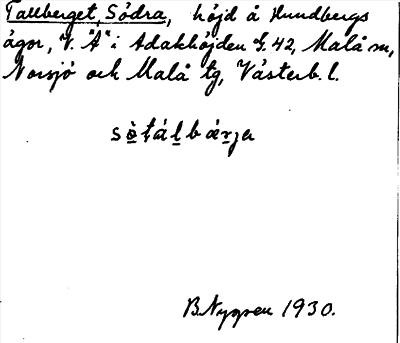 Tallberget, Södra, höjd å Hundbergs
ägor, V. "A" i Adakhöjden G. 42, Malå sn,
Norsjö och Malå tg, Västerb. l.
sø̀ṯálbárja
B. Nygren 1930.